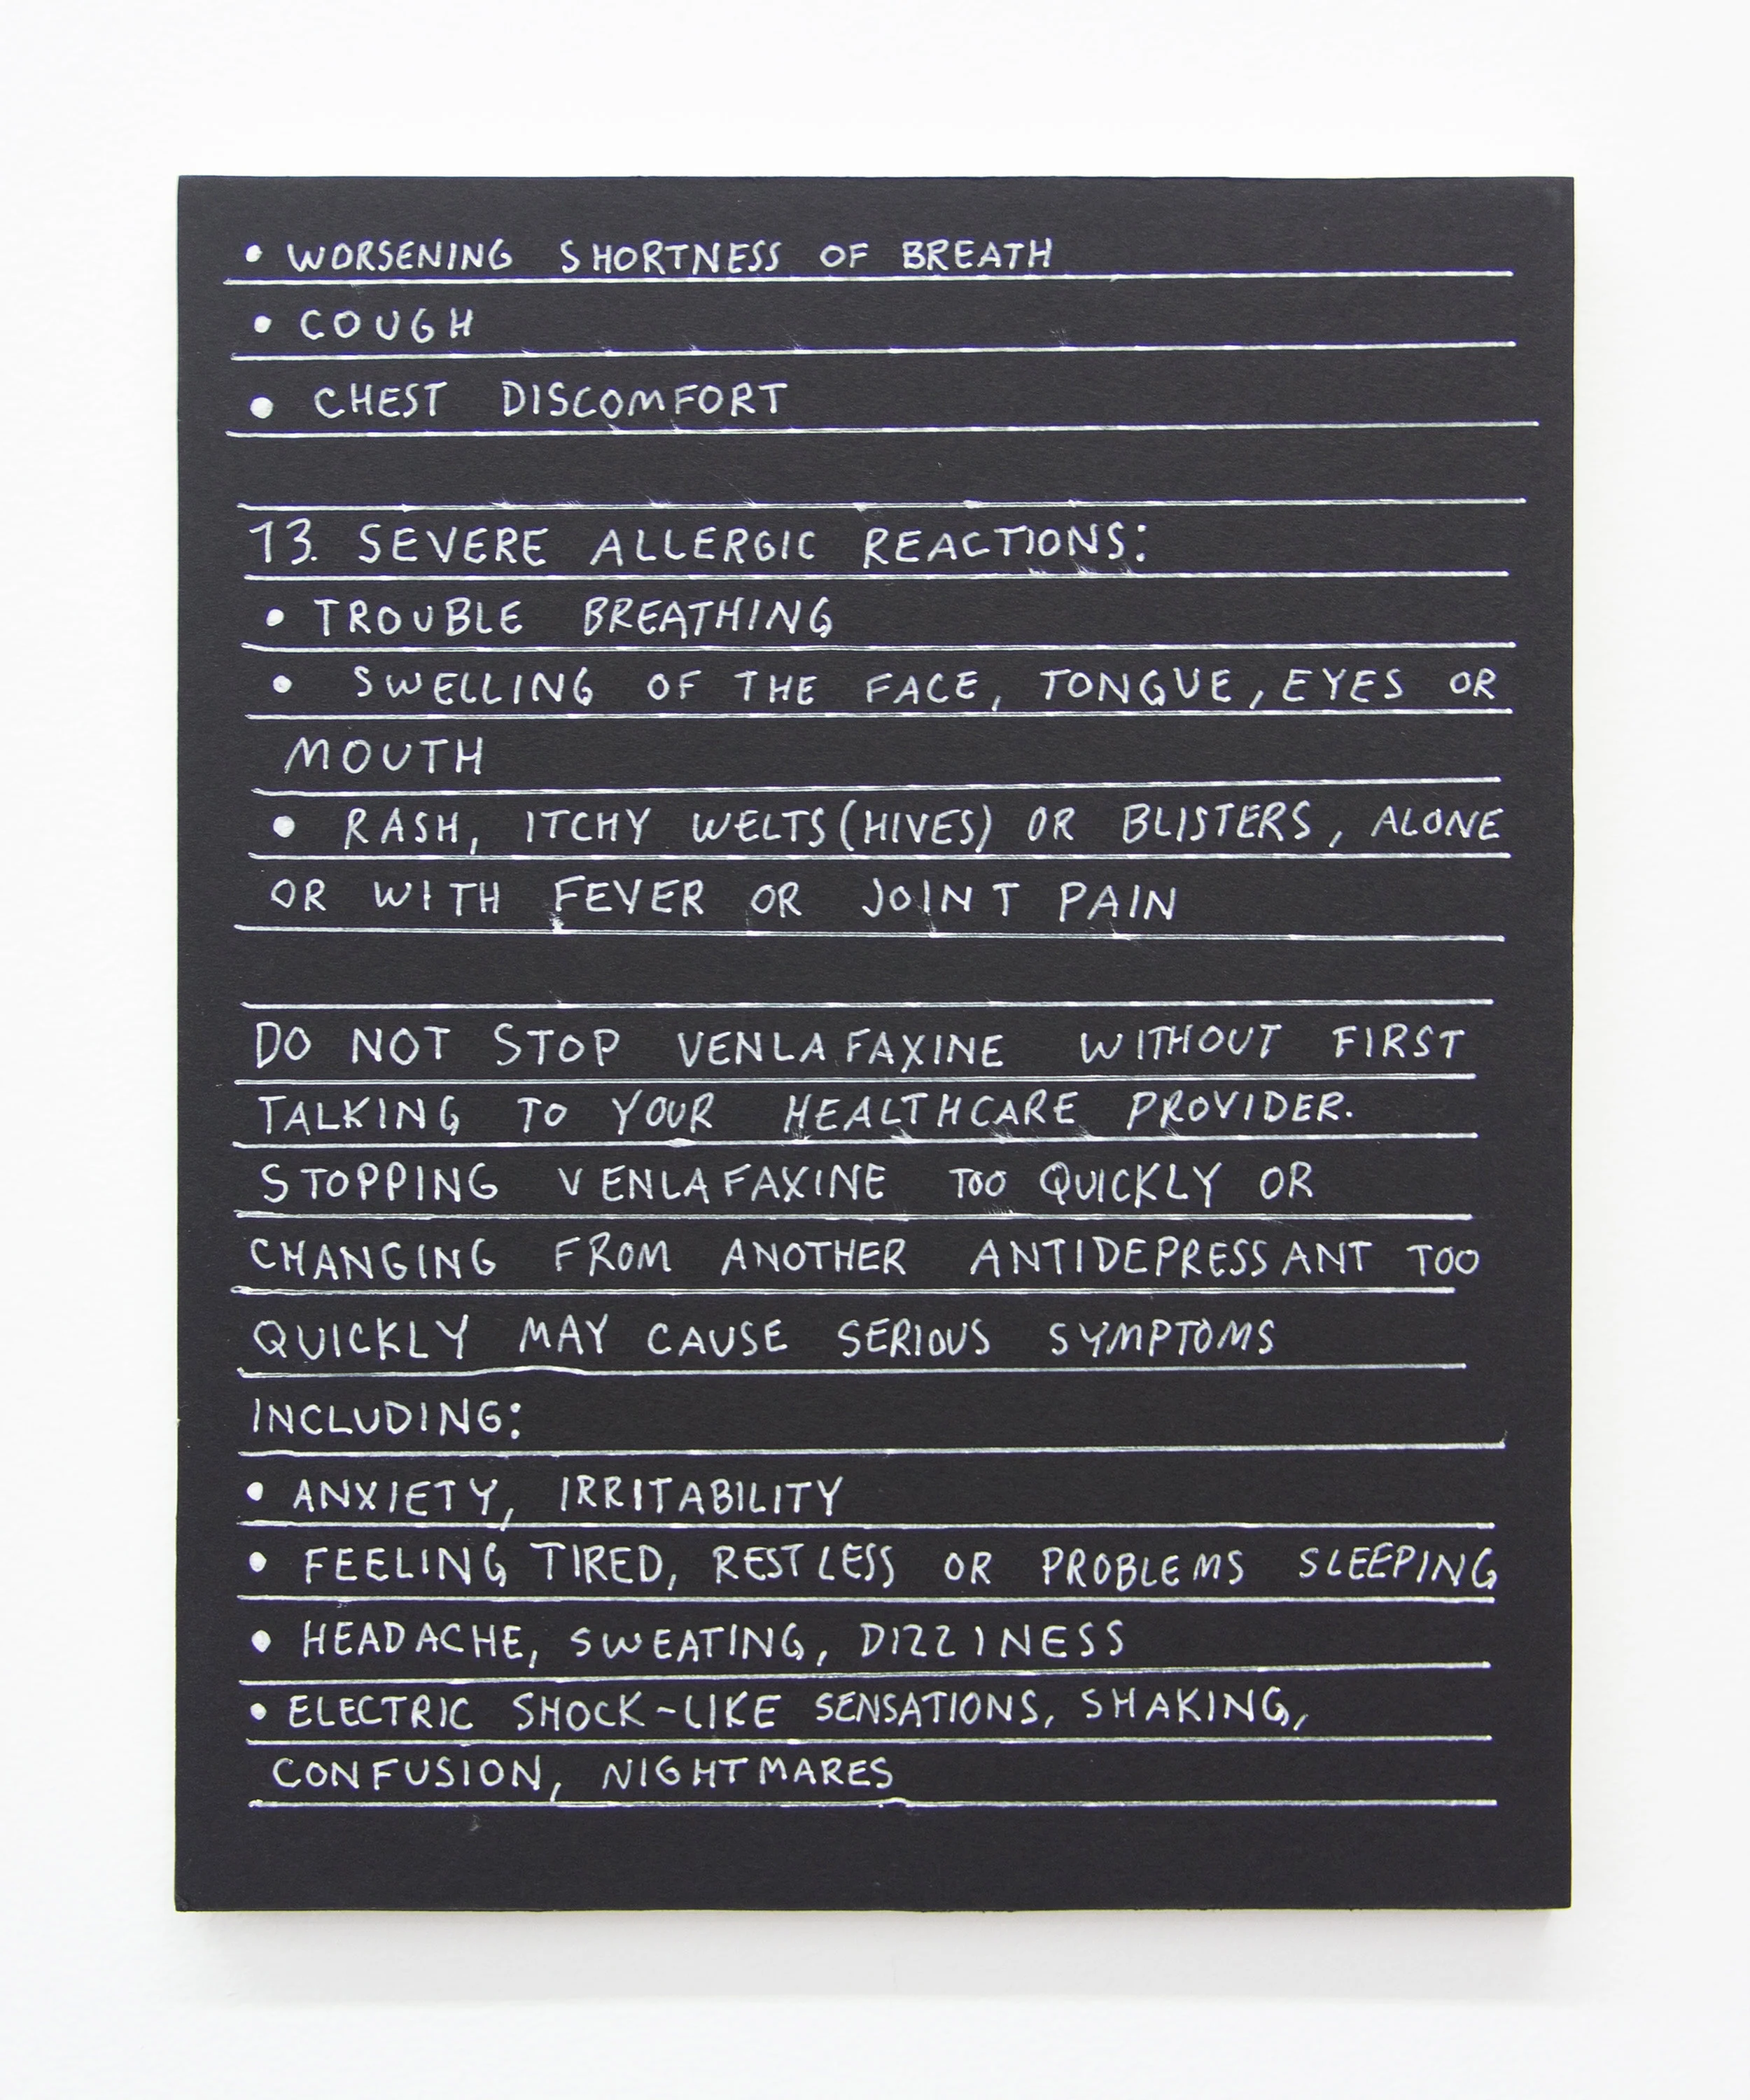 • WORSENING SHORTNESS OF BREATH
• COUGH
• CHEST DISCOMFORT
13. SEVERE ALLERGIC REACTIONS:
• TROUBLE BREATHING
• SWELLING OF THE FACE, TONGUE, EYES OR
MOUTH
• RASH, ITCHY WELTS (HIVES) OR BLISTERS, ALONE
OR WITH FEVER OR JOINT PAIN
DO NOT STOP VENLAFAXINE WITHOUT FIRST
TALKING TO YOUR HEALTHCARE PROVIDER.
STOPPING VENLAFAXINE TOO QUICKLY OR
CHANGING FROM ANOTHER ANTIDEPRESSANT TOO
QUICKLY MAY CAUSE SERIOUS SYMPTOMS
INCLUDING:
• ANXIETY, IRRITABILITY
• FEELING TIRED, RESTLESS OR PROBLEMS SLEEPING
• HEADACHE, SWEATING, DIZZINESS
• ELECTRIC SHOCK-LIKE SENSATIONS, SHAKING,
CONFUSION, NIGHTMARES